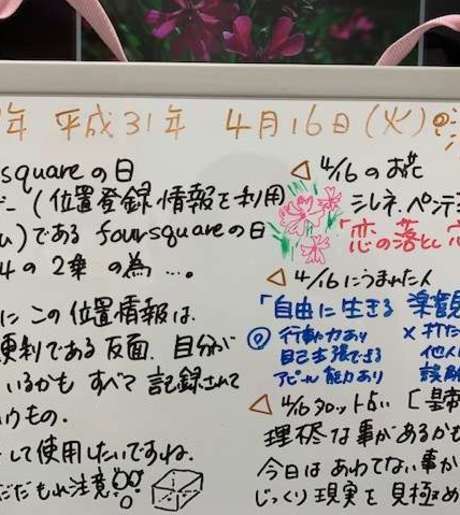 年 平成31年 4月16日(火)
squareの日
(位置登録情報を利用
)である foursquareの日
4の2乗の為…。
にこの位置情報は
便利である反面、自分が
いるかもすべて記録されて
もの。
して使用したいですね.
だだもれ注意!
◁ 4/16のお花
シレネ、ペンデ
「恋の落とし
◁ 4/16にうまれた人
「自由に生きる 楽観
◎ 行動力あり
自己主張できる
アピール能力あり
×打た
他人
誤解
◁ 4/16タロット占い [皇帝
理不尽な事があるかも
今日はあわてない事か
じっくり現実を見極め